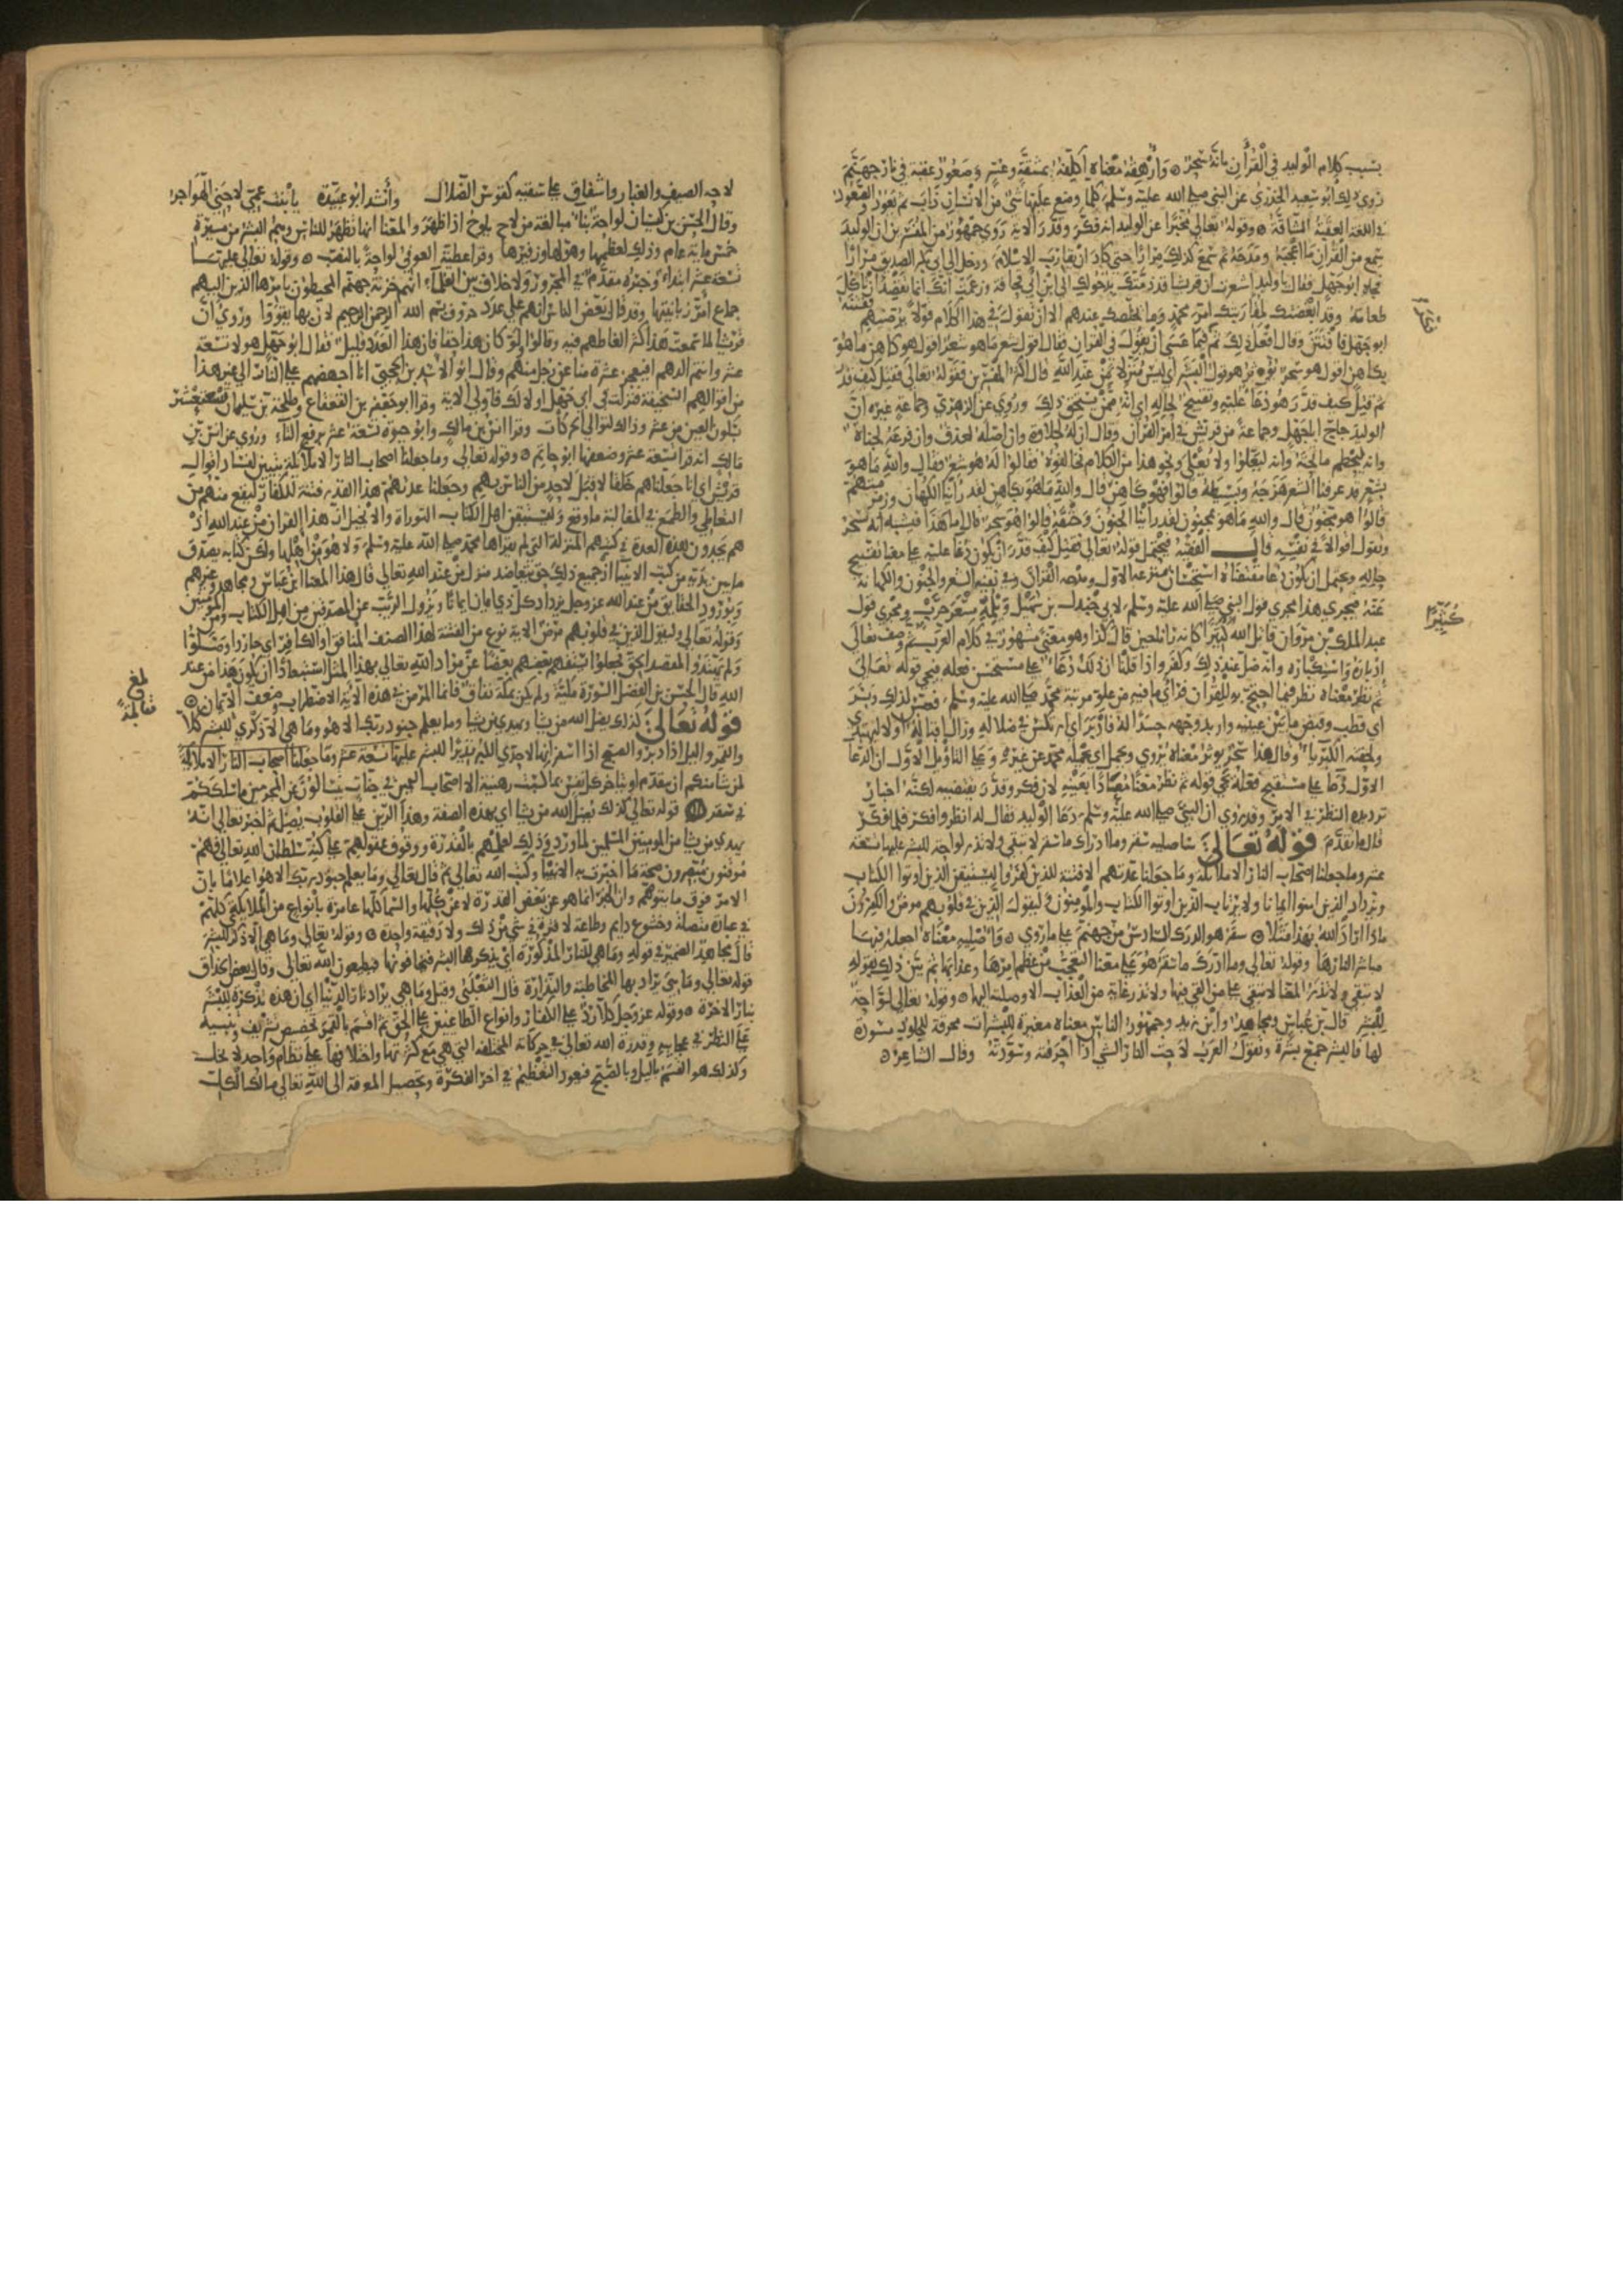 بسبب كلام الوليد في القرآن بانه سحر ۞ وارهقه معناه اكلفه بمشقة وعسر وصعود عقبة في نار جهنم
روى ذلك ابو سعيد الخدري عن النبي صلى الله عليه وسلم كلما وضع عليها شي من الانسان ذاب ثم يعود والصعود
في اللغة العقبة الشاقة ۞ وقوله تعالى مخبرا عن الوليد انه فكر وقدر الاية روى جمهور من المفسرين ان الوليد
سمع من القران ما اعجبه ومدحه ثم سمع كذلك مرارا حتى كاد ان يقارب الاسلام ودخل الى ابي بكر الصديق مرارا
فجاه ابو جهل فقال يا وليد اشعرت ان قريشا قد ذمتك بدخولك الى ابن ابي قحافة وزعمت انك انما تقصد ان تاكل
طعامه وقد ابغضتك لمقاربتك امر محمد وما يخلصك عندهم الا ان تقول في هذا الكلام قولا يرضيهم ففتنه
ابو جهل فافتتن وقال افعل ذلك ثم فكر فيما عسى ان يقول في القران فقال اقول شعر ما هو بشعر اقول هو كاهن ما هو
بكاهن اقول هو سحر يوثر هو قول البشر اي ليس منزلا من عند الله قال اكثر المفسرين فقوله تعالى فقتل كيف قدر
ثم قتل كيف قدر هو دعا عليه وتقبيح لحاله اي انه ممن يستحق ذلك وروي عن الزهري وجماعة غيره ان
الوليد حاج ابا جهل وجماعة من قريش في امر القران وقال ان له لحلاوة وان اصله لعذق وان فرعه لجناة
وانه ليحطم ما تحته وانه ليعلوا ولا يعلى ونحو هذا من الكلام فخالفوه فقالوا له هو شعر فقال والله ما هو
بشعر قد عرفنا الشعر هزجه وبسيطه قالوا فهو كاهن قال والله ما هو بكاهن لقد راينا الكهان وزمزمتهم
قالوا هو مجنون قال والله ما هو بمجنون لقد راينا المجنون وخنقه قالوا هو سحر قال اما هذا فيشبه انه سحر
ونقول اقوالا في نفسه قال الفقيه فيحتمل قوله تعالى فقتل كيف قدر ان يكون دعا عليه على معنا تقبيح
حاله ويحتمل ان يكون دعا مقتضاه استحسان منزعه الاول ومدحه القران وفي نفيه الشعر والجنون والكهانة
عنه فيجري هذا مجرى قول النبي صلى الله عليه وسلم لابي جندل بن سهيل ويلمه مسعر حرب ومجرى قول
عبد الملك بن مروان قاتل الله كثيرا كانه رانا حين قال كذا وهو معنى مشهور في كلام العرب ثم وصف تعالى
ادباره واستكباره وانه ضل عند ذلك وكفر واذا قلنا ان ذلك دعا على مستحسن فعله فيجي قوله تعالى
ثم نظر معناه نظر فيما احتج به للقران فراى ما فيه من علو مرتبة محمد صلى الله عليه وسلم فعبس لذلك وبسر
اي قطب وقبض ما بين عينيه واربد وجهه حسدا له فادبر اي ارتكس في ضلاله وزال اقباله اولا ليهتدي
ولحقته الكبريا وقال هذا سحر يوثر معناه يروى ويحمل اي يحمله محمد عن غيره وعلى التاويل الاول ان الدعا
الاول دعا على مستقبح فعله يجي قوله ثم نظر معنا معادا بعينه لان فكر وقدر يقتضيه لكنه اخبار
ترديده النظر في الامر وقد روي ان النبي صلى الله عليه وسلم دعا الوليد فقال له انظر وافكر فلما فكر
قال ما تقدم قوله تعالى ساصليه سقر وما ادراك ما سقر لا تبقي ولا تذر لواحة للبشر عليها تسعة
عشر وما جعلنا اصحاب النار الا ملائكة وما جعلنا عدتهم الا فتنة للذين كفروا ليستيقن الذين اوتوا الكتاب
ويزداد الذين امنوا ايمانا ولا يرتاب الذين اوتوا الكتاب والمومنون وليقول الذين في قلوبهم مرض والكافرون
ماذا اراد الله بهذا مثلا ۞ سقر هو الدرك السادس من جهنم على ما روي ۞ فاصليه معناه اجعله فيها
مباشرا لنارها وقوله تعالى وما ادرك ما سقر هو على معنا التعجب من عظم امرها وعذابها ثم بين ذلك بقوله
لا تبقي ولا تذر المعنا لا تبقي على من القي فيها ولا تذر غاية من العذاب الا وصلته اليها ۞ وقوله تعالى لواحة
للبشر قال بن عباس ومجاهد وابن زيد وجمهور الناس معناه مغيرة للبشرات محرقة للجلود مسودة
لها فالبشر جمع بشرة وتقول العرب لاحت النار الشي اذا احرقته وسودته وقال الشاعر ۞
كثيرا
لاحه الصيف والغيار واشفاق على سقبه كقوس الضلال وانشد ابو عبيدة يا بنت عمي لاحني الهواجر
وقال الحسن بن كيسان لواحة بنا مبالغة من لاح يلوح اذا ظهر والمعنا انها تظهر للناس وهم البشر من مسيرة
خمس ماية عام وذلك لعظمها وهولها وزفيرها وقرا عطية العوفي لواحة بالنصب ۞ وقوله تعالى عليها
تسعة عشر ابتداء وخبره مقدم في المجرور ولا خلاف بين العلماء انهم خزنة جهنم المحيطون بامرها الذين اليهم
جماع امر زبانيتها وقد قال بعض الناس انهم على عدد حروف بسم الله الرحمن الرحيم لان بها تقووا وروي ان
قريشا لما سمعت هذا كثر الغاطهم فيه وقالوا لو كان هذا حقا فان هذا العدد قليل فقال ابو جهل هولا تسعة
عشر وانتم الدهم افيعجز عشرة منا عن رجل منهم وقال ابو الاشد بن الجمحي انا اجهضهم على النار الى غير هذا
من اقوالهم السخيفة فنزلت في ابي جهل اولى لك فاولى الاية وقرا ابو جعفر بن القعقاع وطلحة بن سليمان تسعة عشر
بسكون العين من عشر وذلك لتوالي الحركات وقرا انس بن مالك وابو حيوة تسعة عشر برفع التاء وروي عن انس بن
مالك انه قرا تسعة عشر وضعفها ابو حاتم ۞ وقوله تعالى وما جعلنا اصحاب النار الا ملائكة تبيين لفساد اقوال
قريش اي انا جعلناهم خلقا لا قبل لاحد من الناس بهم وجعلنا عدتهم هذا القدر فتنة للكفار ليقع منهم من
التعاطي والطمع في المغالبة ما وقع وليستيقن اهل الكتاب التوراة والانجيل ان هذا القران من عند الله اذ
هم يجدون هذه العدة في كتبهم المنزلة التي لم يقراها محمد صلى الله عليه وسلم ولا هو من اهلها ولكن كتابه يصدق
ما بين يديه من كتب الانبيا اذ جميع ذلك حق يتعاضد منزل من عند الله تعالى قال هذا المعنا ابن عباس ومجاهد وغيرهم
وبورود الحقايق من عند الله عز وجل يزداد كل ذي ايمان ايمانا ويزول الريب عن المصدقين من اهل الكتاب ومن المومنين
وقوله تعالى وليقول الذين في قلوبهم مرض الاية نوع من الفتنة لهذا الصنف المنافق او الكافر اي حاروا وضلوا
ولم يهتدوا لمقصد الحق فجعلوا يستفهم بعضهم بعضا عن مراد الله تعالى بهذا المثل استبعادا ان يكون هذا من عند
الله قال الحسن بن الفضل السورة مكية ولم يكن بمكة نفاق فانما المرض في هذه الاية الاضطراب وضعف الايمان ۞
قوله تعالى كذلك يضل الله من يشا ويهدي من يشا وما يعلم جنود ربك الا هو وما هي الا ذكرى للبشر كلا
والقمر والليل اذا دبر والصبح اذا اسفر انها لاحدى الكبر نذيرا للبشر
لمن شا منكم ان يتقدم او يتاخر كل نفس بما كسبت رهينة الا اصحاب اليمين في جنات يتسالون عن المجرمين ما سلككم
في سقر ۞ قوله تعالى كذلك يضل الله من يشا اي بهذه الصفة وهذا الرين على القلوب يضل ثم اخبر تعالى انه
يهدي من يشا من المومنين المسلمين لما ورد وذلك لعلمهم بالقدرة ووقوف عقولهم على كنه سلطان الله تعالى فهم
موقنون متصورون صحة ما اخبرت به الانبيا وكتب الله تعالى ثم قال تعالى وما يعلم جنود ربك الا هو اعلاما بان
الامر فوق ما يتوهم وان الخبر انما هو عن بعض القدرة لا عن كلها والسما كلها عامرة بانواع من الملايكة كلهم
في عبادة متصلة وخشوع دايم وطاعة لا فترة في شي من ذلك ولا دقيقة واحدة ۞ وقوله تعالى وما هي الا ذكرى للبشر
قال مجاهد الضمير في قوله وما هي للنار المذكورة اي يذكرها البشر فيخافونها فيطيعون الله تعالى وقال بعض الحذاق
قوله تعالى وما هي يراد بها المخاطبة والنذارة قال الثعلبي وقيل وما هي يراد نار الدنيا اي ان هذه تذكرة للبشر
بنار الاخرة ۞ وقوله عز وجل كلا رد على الكفار وانواع الطاغين على الحق ثم اقسم بالقمر تخصيص تشريف وتنبيه
على النظر في عجايبه وقدرة الله تعالى في حركاته المختلفة التي هي مع كثرتها واختلافها على نظام واحد لا يختل
وكذلك هو القسم بالليل وبالصبح فيعود التعظيم في اخر الفكرة وتحصيل المعرفة الى الله تعالى مالك الكل